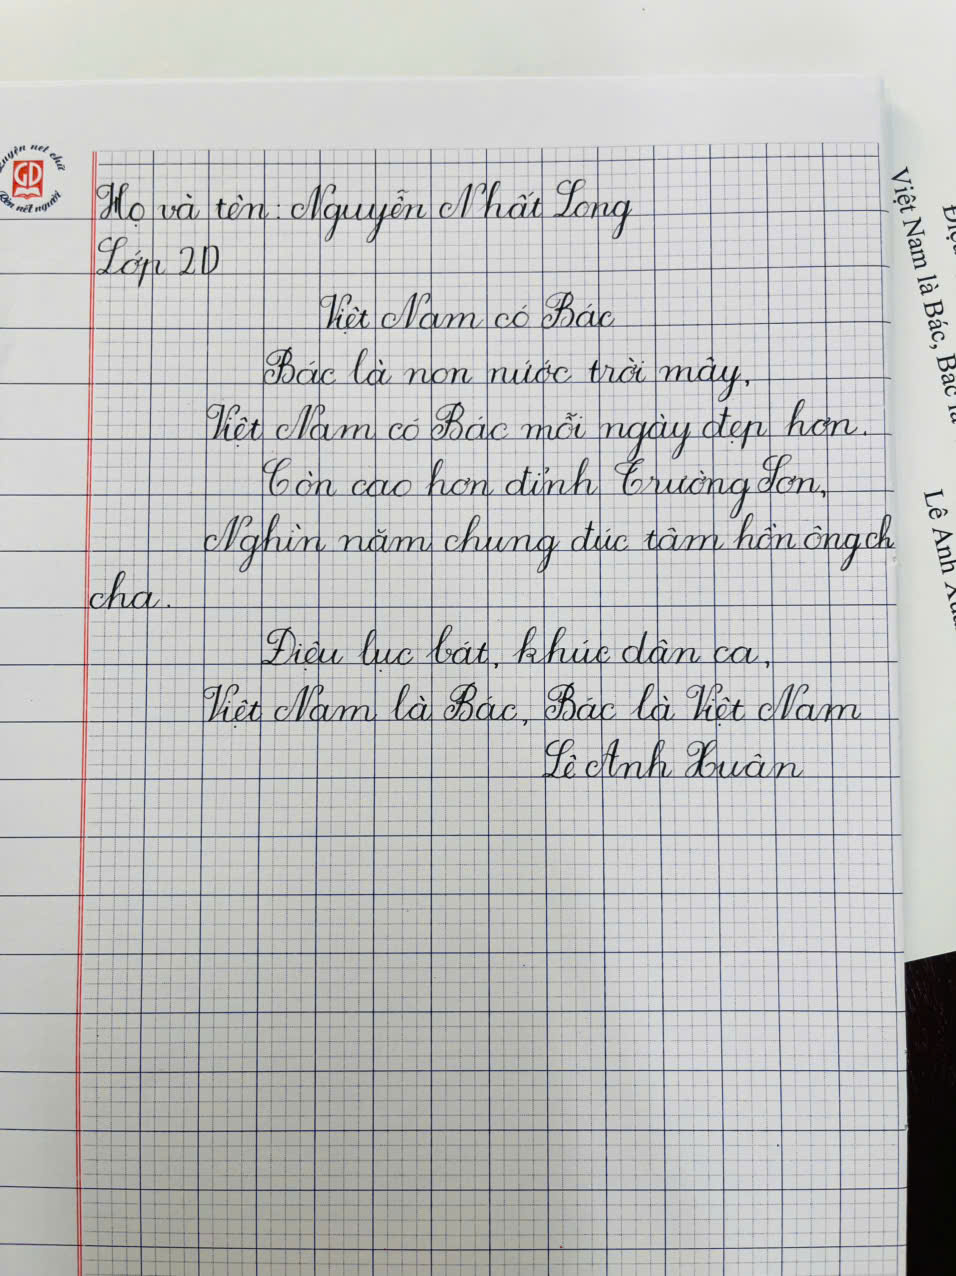 Luyện nét chữ
GD
Rèn nết người
Họ và tên: Nguyễn Nhất Long
Lớp 2D
Việt Nam có Bác
Bác là non nước trời mây,
Việt Nam có Bác mỗi ngày đẹp hơn.
Còn cao hơn đỉnh Trường Sơn,
Nghìn năm chung đúc tâm hồn ông ch
cha.
Điệu lục bát, khúc dân ca,
Việt Nam là Bác, Bác là Việt Nam
Lê Anh Xuân
Điệu
Việt Nam là Bác, Bác là
Lê Anh Xuâ